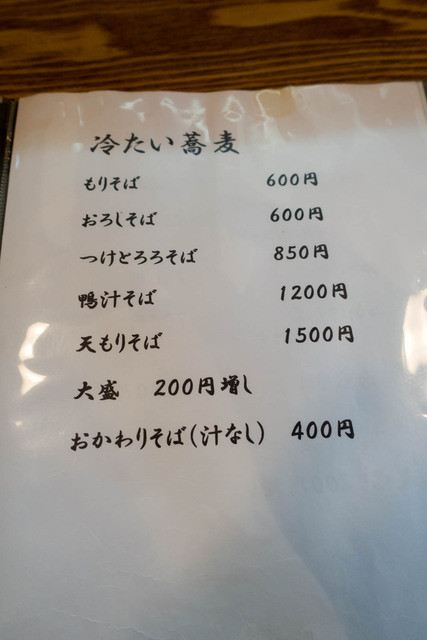 冷たい蕎麦
もりそば 600円
おろしそば 600円
つけとろろそば 850円
鴨汁そば 1200円
天もりそば 1500円
大盛 200円増し
おかわりそば(汁なし) 400円